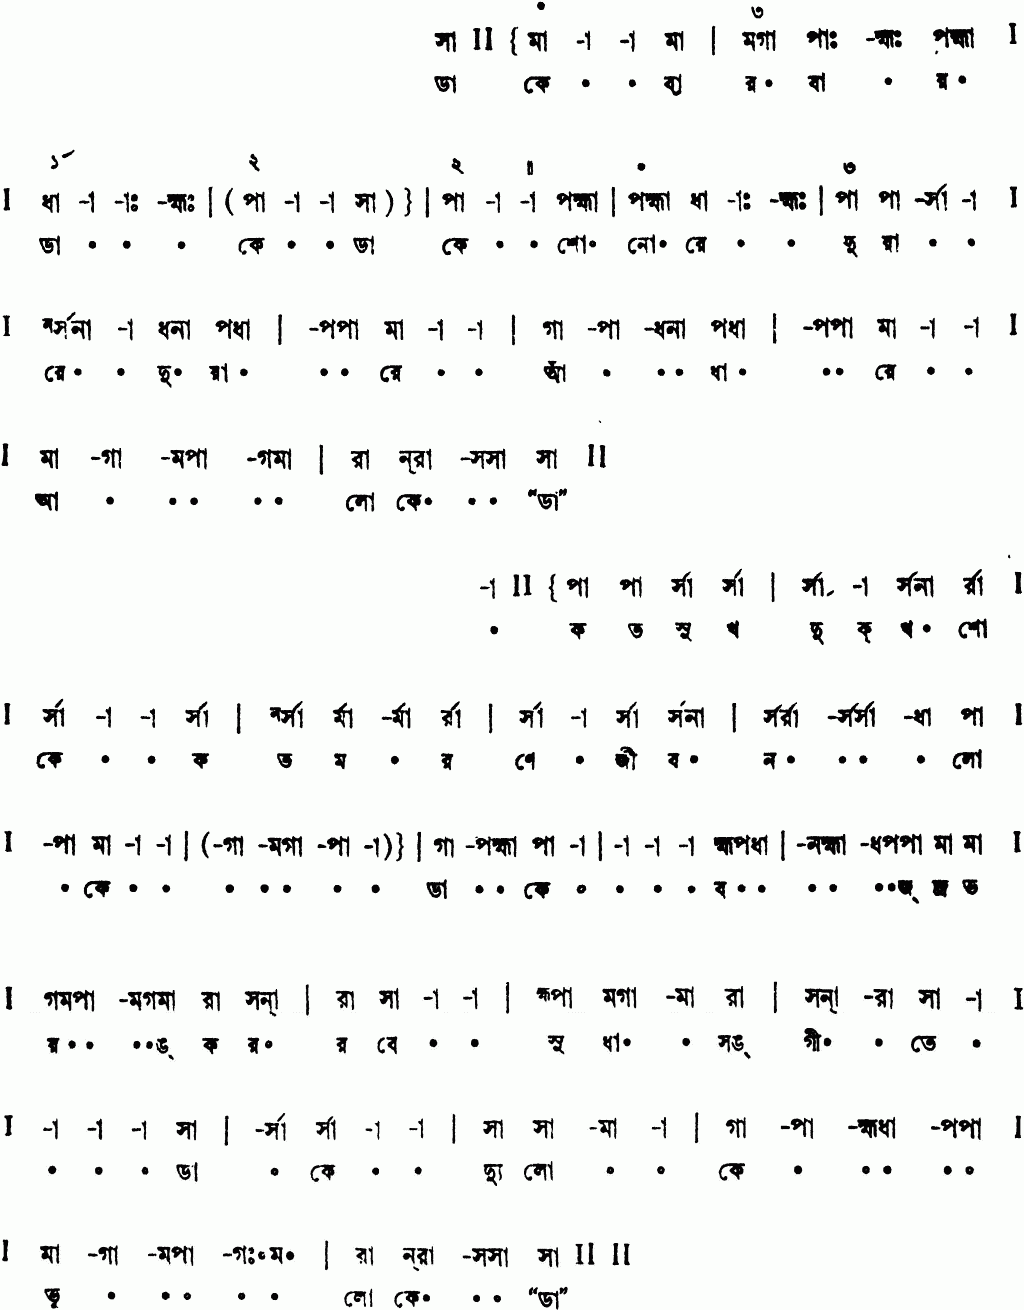 • ৩
সা II {মা -া -া মা | মগা পাঃ -হ্মঃ পহ্মা I
ডা কে • • বা র • বা • র •
১´ ২ ২ ॥ • ৩
I ধা -া -াঃ -হ্মঃ | (পা -া -া সা)} | পা -া -া পহ্মা | পহ্মা ধা -াঃ -হ্মঃ | পা পা -র্সা -া I
ডা • • • কে • • ডা কে • • শো• নো• রে • • দু রা • •
I নর্সনা -া ধনা পধা | -পপা মা -া -া | গা -পা -ধনা পধা | -পপা মা -া -া I
রে • • দু • রা • • • রে • • আঁ • • • ধা • • • রে • •
I মা -গা -মপা -গমা | রা ন্‌রা -সসা সা II
আ • • • • • লো কে• • • “ডা”
-া II {পা পা র্সা র্সা | র্সা -া র্সনা র্রা I
• ক ত সু খ দু ক্ খ • শো
I র্সা -া -া র্সা | নর্সা র্মা -র্মা র্রা | র্সা -া র্সা র্সনা | র্সর্রা -র্সর্সা -ধা পা I
কে • • ক ত ম • র ণে • জী ব • ন • • • • লো
I -পা মা -া -া | (-গা -মগা -পা -া)} | গা -পহ্মা পা -া | -া -া -া হ্মপধা | -নহ্মা -ধপপা মা মা I
• কে • • • • • • • ডা • • কে • • • • ব • • • • • •জ্ জ্র ত
I গমপা -মগমা রা সন্‌া | রা সা -া -া | হ্মপা মগা -মা রা | সন্‌া -রা সা -া I
র • • • •ঙ্ ক র • র বে • • সু ধা • • সঙ্ গী • • তে •
I -া -া -া সা | -র্সা র্সা -া -া | সা সা -মা -া | গা -পা -হ্মধা -পপা I
• • • ডা • কে • • দ্যু লো • • কে • • • • •
I মা -গা -মপা -গঃ•ম• | রা ন্‌রা -সসা সা II II
ভূ • • • • • লো কে• • • “ডা”